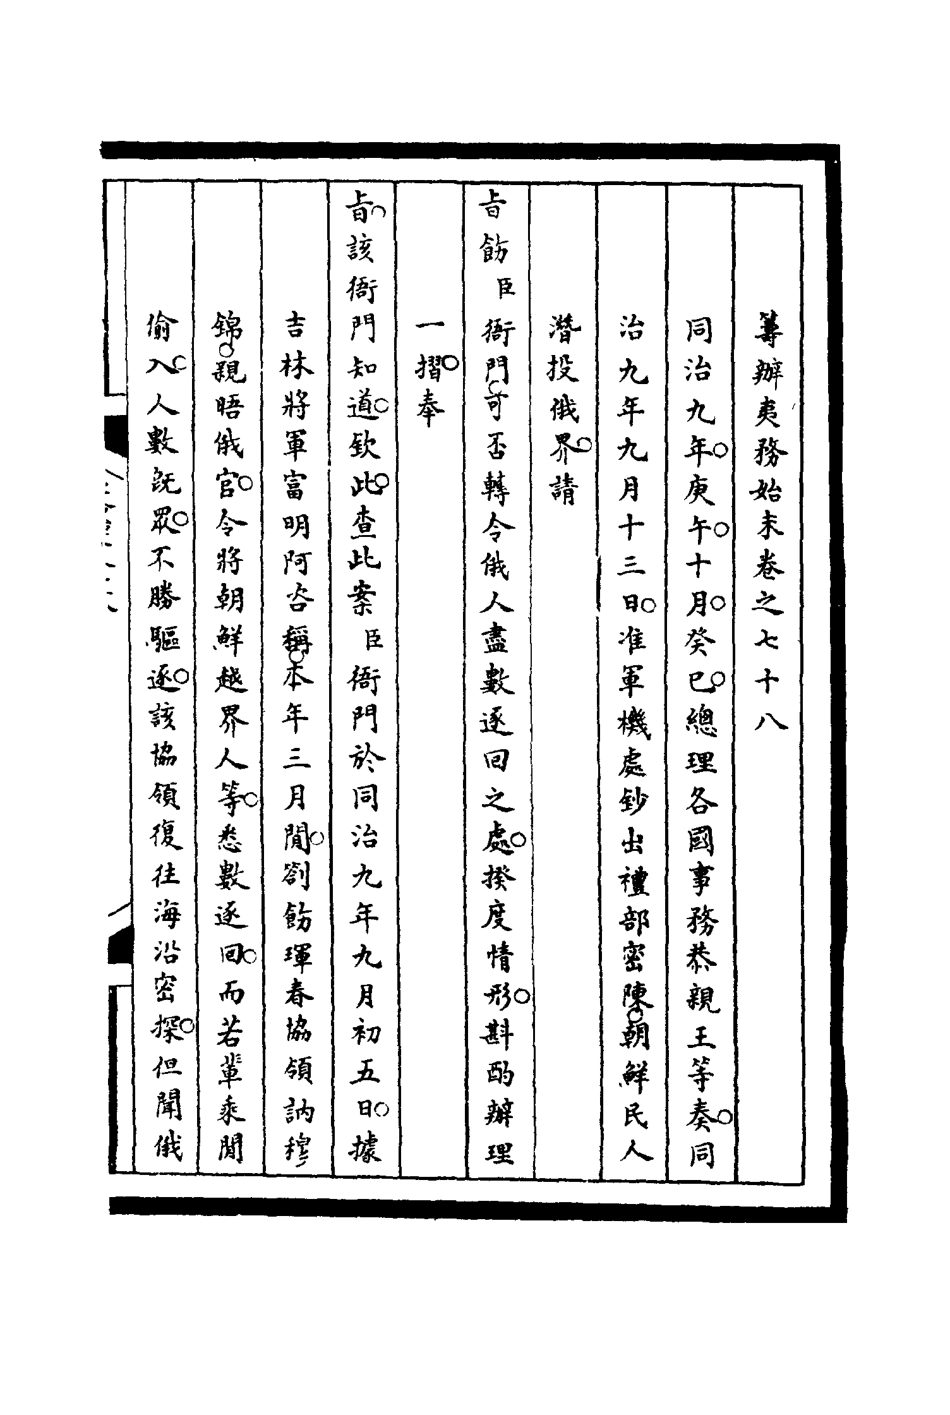 籌辦夷務始末卷之七十八
同治九年。庚午。十月。癸巳。總理各國事務恭親王等奏。同
治九年九月十三日。准軍機處鈔出禮部密陳。朝鮮民人
潛投俄界。請
旨飭臣衙門。可否轉令俄人盡數逐回之處。揆度情形。斟酌辦理
一摺。奉
旨。該衙門知道。欽此。查此案臣衙門於同治九年九月初五日。據
吉林將軍富明阿咨稱。本年三月間。劄飭琿春協領訥穆
錦。親晤俄官。令將朝鮮越界人等。悉數逐回。而若輩乘間
偷入。人數既眾。不勝驅逐。該協領復往海沿密探。但聞俄